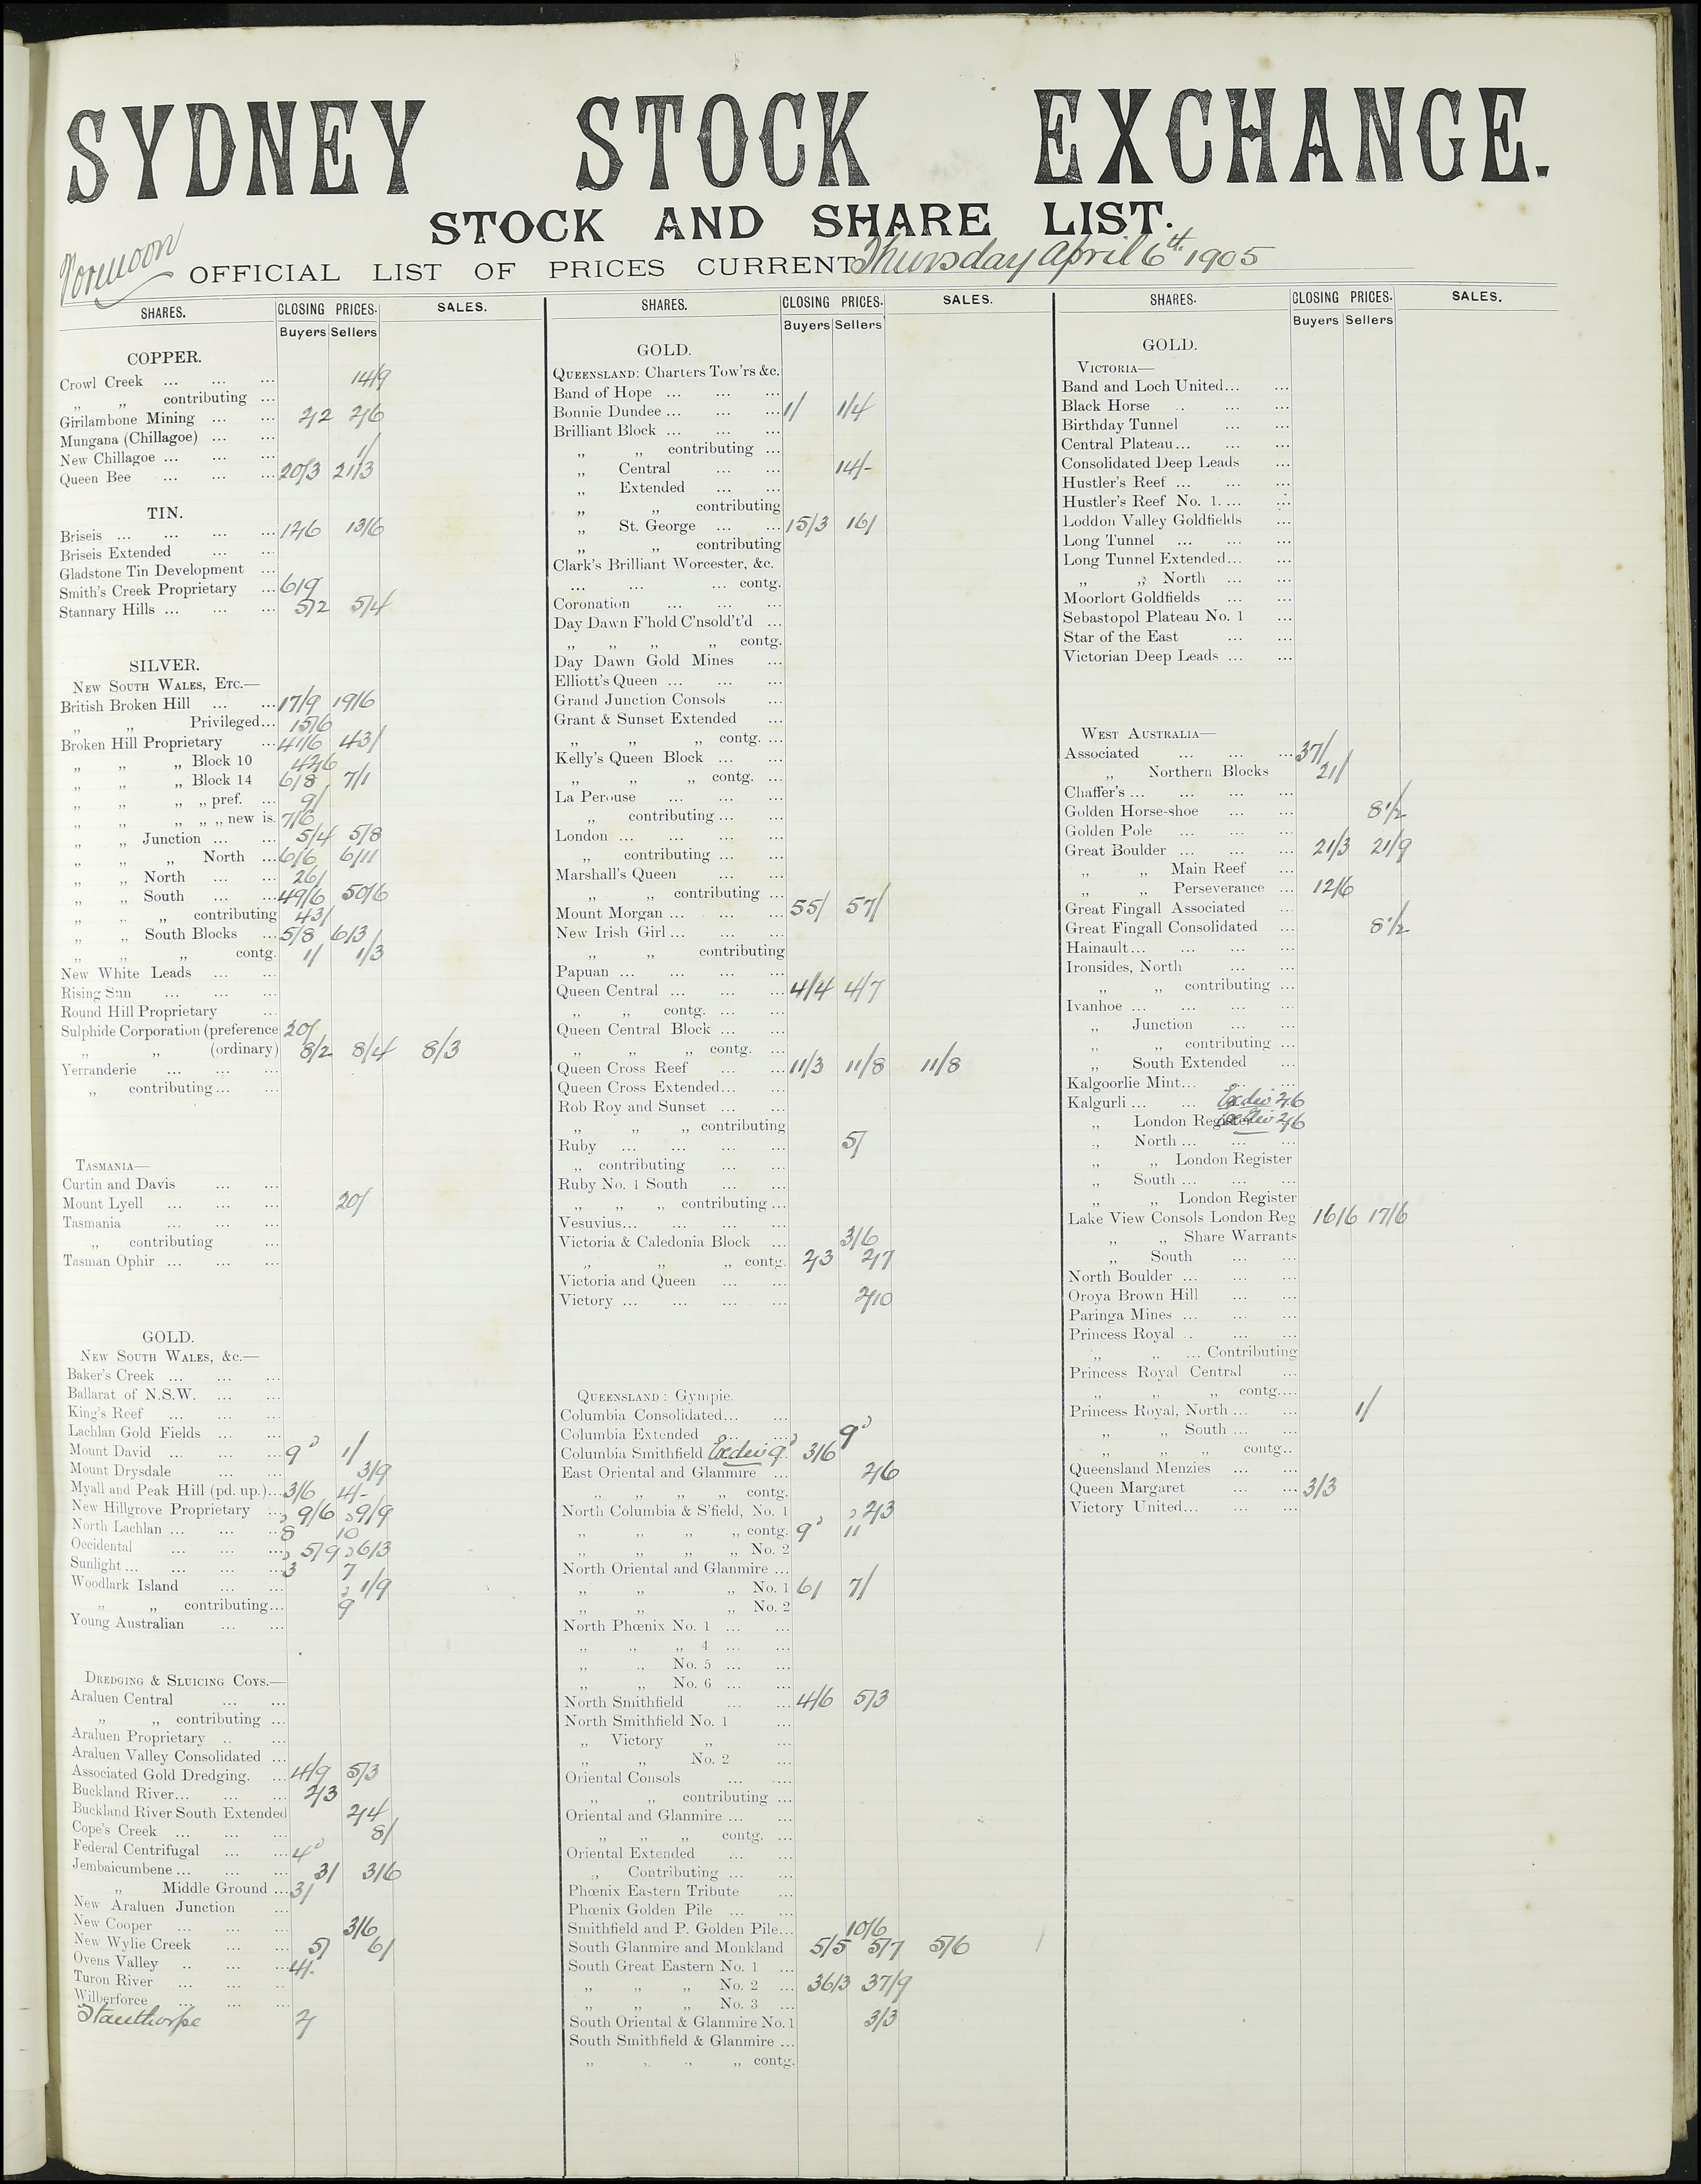 SYDNEY STOCK EXCHANGE.
STOCK AND SHARE LIST.
Forenoon
OFFICIAL LIST OF PRICES CURRENT Thursday April 6th 1905
SHARES. CLOSING PRICES. SALES.
Buyers Sellers
COPPER.
Crowl Creek ... ... ... 14/9
„ „ contributing ...
Girilambone Mining ... ... 2/2 2/6
Mungana (Chillagoe) ... ...
New Chillagoe ... ... ... 1/
Queen Bee ... ... ... 20/3 21/3
TIN.
Briseis ... ... ... ... 12/6 13/6
Briseis Extended ... ...
Gladstone Tin Development ...
Smith's Creek Proprietary ... 6/9
Stannary Hills ... ... ... 5/2 5/4
SILVER.
NEW SOUTH WALES, ETC.—
British Broken Hill ... ... 17/9 19/6
„ „ Privileged... 15/6
Broken Hill Proprietary ... 41/6 43/
„ „ „ Block 10 42/6
„ „ „ Block 14 6/8 7/1
„ „ „ „ pref. ... 9/
„ „ „ „ „ new is. 7/6
„ „ Junction ... ... 5/4 5/8
„ „ „ North ... 6/6 6/11
„ „ North ... ... 26/
„ „ South ... ... 49/6 50/6
„ „ „ contributing 43/
„ „ South Blocks ... 5/8 6/3
„ „ „ contg. 1/ 1/3
New White Leads ... ...
Rising Sun ... ... ...
Round Hill Proprietary ...
Sulphide Corporation (preference 20/
„ „ (ordinary) 8/2 8/4 8/3
Yerranderie ... ... ...
„ contributing ... ...
TASMANIA—
Curtin and Davis ... ...
Mount Lyell ... ... ... 20/
Tasmania ... ... ...
„ contributing ...
Tasman Ophir ... ... ...
GOLD.
NEW SOUTH WALES, &c.—
Baker's Creek ... ... ...
Ballarat of N.S.W. ... ...
King's Reef ... ... ...
Lachlan Gold Fields ... ...
Mount David ... ... ... 9d 1/
Mount Drysdale ... ... 3/9
Myall and Peak Hill (pd. up.)... 3/6 4/-
New Hillgrove Proprietary ... 9/6 9/9
North Lachlan ... ... ... 8d 10d
Occidental ... ... ... 5/9 6/3
Sunlight ... ... ... ... 3d 7d
Woodlark Island ... ... 1/9
„ „ contributing... 9d
Young Australian ... ...
DREDGING & SLUICING COYS.—
Araluen Central ... ...
„ „ contributing ...
Araluen Proprietary .. ...
Araluen Valley Consolidated ...
Associated Gold Dredging. ... 4/9 5/3
Buckland River... ... ... 2/3
Buckland River South Extended 2/4
Cope's Creek ... ... ... 8/
Federal Centrifugal ... ... 4d
Jembaicumbene ... ... ... 3/ 3/6
„ Middle Ground ... 3/
New Araluen Junction ...
New Cooper ... ... ... 3/6
New Wylie Creek ... ... 5/ 6/
Ovens Valley .. ... ... 4/-
Turon River ... ... ..
Wilberforce ... ... ...
Stanthorpe 2/
SHARES. CLOSING PRICES. SALES.
Buyers Sellers
GOLD.
QUEENSLAND: Charters Tow'rs &c.
Band of Hope ... ... ...
Bonnie Dundee ... ... ... 1/ 1/4
Brilliant Block ... ... ...
„ „ contributing ...
„ Central ... ... 14/-
„ Extended ... ...
„ „ contributing
„ St. George ... ... 15/3 16/
„ „ contributing
Clark's Brilliant Worcester, &c.
... ... ... contg.
Coronation ... ... ...
Day Dawn F'hold C'nsold't'd ...
„ „ „ „ contg.
Day Dawn Gold Mines ...
Elliott's Queen ... ... ...
Grand Junction Consols ...
Grant & Sunset Extended ...
„ „ „ contg. ...
Kelly's Queen Block ... ...
„ „ „ contg. ...
La Perouse ... ... ...
„ contributing ... ...
London ... ... ... ...
„ contributing ... ...
Marshall's Queen ... ...
„ „ contributing ...
Mount Morgan ... ... ... 55/ 57/
New Irish Girl ... ... ...
„ „ contributing
Papuan ... ... ... ...
Queen Central ... ... ... 4/4 4/7
„ „ contg. ... ...
Queen Central Block ... ...
„ „ „ contg. ...
Queen Cross Reef ... ... 11/3 11/8 11/8
Queen Cross Extended... ...
Rob Roy and Sunset ... ...
„ „ „ contributing
Ruby ... ... ... ... 5/
„ contributing ... ...
Ruby No. 1 South ... ...
„ „ „ contributing ...
Vesuvius... ... ... ...
Victoria & Caledonia Block ... 3/6
„ „ „ contg. 2/3 2/7
Victoria and Queen ... ...
Victory ... ... ... ... 2/10
QUEENSLAND: Gympie.
Columbia Consolidated... ...
Columbia Extended ... ... 9d
Columbia Smithfield Ex div 9d 3/6
East Oriental and Glanmire ... 2/6
„ „ „ „ contg.
North Columbia & S'field, No. 1 2/3
„ „ „ „ contg. 9d 11d
„ „ „ „ No. 2
North Oriental and Glanmire ...
„ „ „ No. 1 6/ 7/
„ „ „ No. 2
North Phœnix No. 1 ... ...
„ „ „ 4 ... ...
„ „ No. 5 ... ...
„ „ No. 6 ... ...
North Smithfield ... ... 4/6 5/3
North Smithfield No. 1 ...
„ Victory „ ...
„ „ No. 2 ...
Oriental Consols ... ....
„ „ contributing ...
Oriental and Glanmire ... ...
„ „ „ contg. ...
Oriental Extended ... ...
„ Contributing ... ...
Phœnix Eastern Tribute ...
Phœnix Golden Pile ... ...
Smithfield and P. Golden Pile... 10/6
South Glanmire and Monkland 5/5 5/7 5/6
South Great Eastern No. 1 ...
„ „ „ No. 2 ... 36/3 37/9
„ „ „ No. 3 ...
South Oriental & Glanmire No. 1 3/3
South Smithfield & Glanmire ...
„ „ „ „ contg.
SHARES. CLOSING PRICES. SALES.
Buyers Sellers
GOLD.
VICTORIA—
Band and Loch United... ...
Black Horse .. ... ...
Birthday Tunnel ... ...
Central Plateau ... ... ...
Consolidated Deep Leads ...
Hustler's Reef ... ... ...
Hustler's Reef No. 1. ... ...
Loddon Valley Goldfields ...
Long Tunnel ... ... ...
Long Tunnel Extended... ...
„ „ North ... ...
Moorlort Goldfields ... ...
Sebastopol Plateau No. 1 ...
Star of the East ... ...
Victorian Deep Leads ... ...
WEST AUSTRALIA—
Associated ... ... ... 37/
„ Northern Blocks 21/
Chaffer's ... ... ... ...
Golden Horse-shoe ... ... 8 1/2
Golden Pole ... ... ...
Great Boulder ... ... ... 21/3 21/9
„ „ Main Reef ...
„ „ Perseverance ... 12/6
Great Fingall Associated ...
Great Fingall Consolidated ... 8 1/2
Hainault ... ... ... ...
Ironsides, North ... ...
„ „ contributing ...
Ivanhoe ... ... ... ...
„ Junction ... ...
„ „ contributing ...
„ South Extended ...
Kalgoorlie Mint... ... ...
Kalgurli ... ... Ex div 2/6
„ London Register Ex div 2/6
„ North ... ... ...
„ „ London Register
„ South ... ... ...
„ „ London Register
Lake View Consols London Reg 16/6 17/6
„ „ Share Warrants
„ South ... ...
North Boulder ... ... ...
Oroya Brown Hill ... ...
Paringa Mines ... ... ...
Princess Royal .. ... ...
„ „ ... Contributing
Princess Royal Central ...
„ „ „ contg....
Princess Royal, North ... ... 1/
„ „ South ... ...
„ „ „ contg..
Queensland Menzies ... ...
Queen Margaret ... ... 3/3
Victory United... ... ...